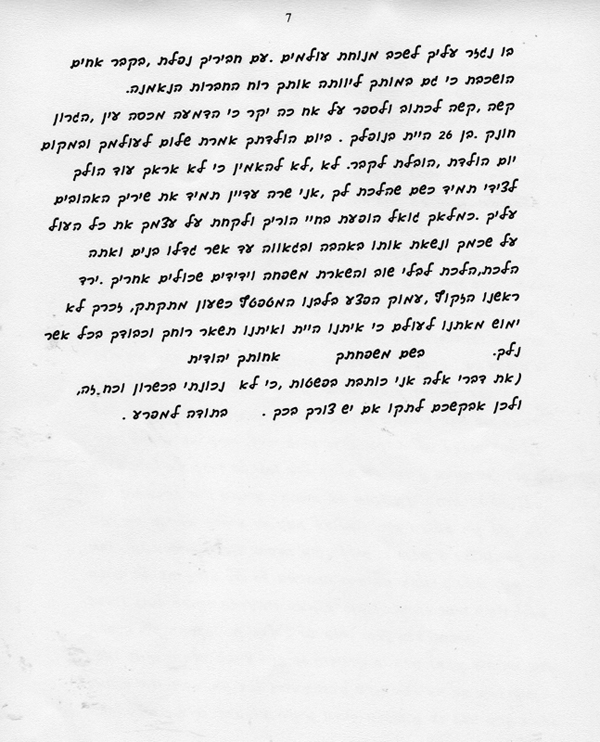 7
בו נגזר עליך לשכב מנוחת עולמים .עם חביריך נפלת ,בקבר אחים
הושכבת כי גם במותך ליוותה אותך רוח החברות הנאמנה.
קשה ,קשה לכתוב ולספר על אח כה יקר כי הדמעה מכסה עין ,הגרון
חונק .בן 26 היית בנופלך . ביום הולדתך אמרת שלום לעולמך ובמקום
יום הולדת ,הובלת לקבר. לא ,לא להאמין כי לא אראך עוד הולך
לצידי תמיד כשם שהלכת לך ,אני שרה עדיין תמיד את שיריך האהובים
עליך .כמלאך גואל הופעת בחיי הוריך ולקחת על עצמך את כל העול
על שכמך ונשאת אותו באהבה ובגאווה עד אשר גדלו בנים ואתה
הלכת,הלכת לבלי שוב והשארת משפחה וידידים שכולים אחריך .ירד
ראשנו הזקוף ,עמוק הפצע בלבנו המטפטף כשעון מתקתק, זכרך לא
ימוש מאתנו לעולם כי איתנו היית ואיתנו תשאר רוחך וכבודך בכל אשר
נלך. בשם משפחתך אחותך יהודית
(את דברי אלה אני כותבת בפשטות ,כי לא נכונתי בכשרון וכח זה,
ולכן אבקשכם לתקו אם יש צורך בכך . בתודה למפרע .